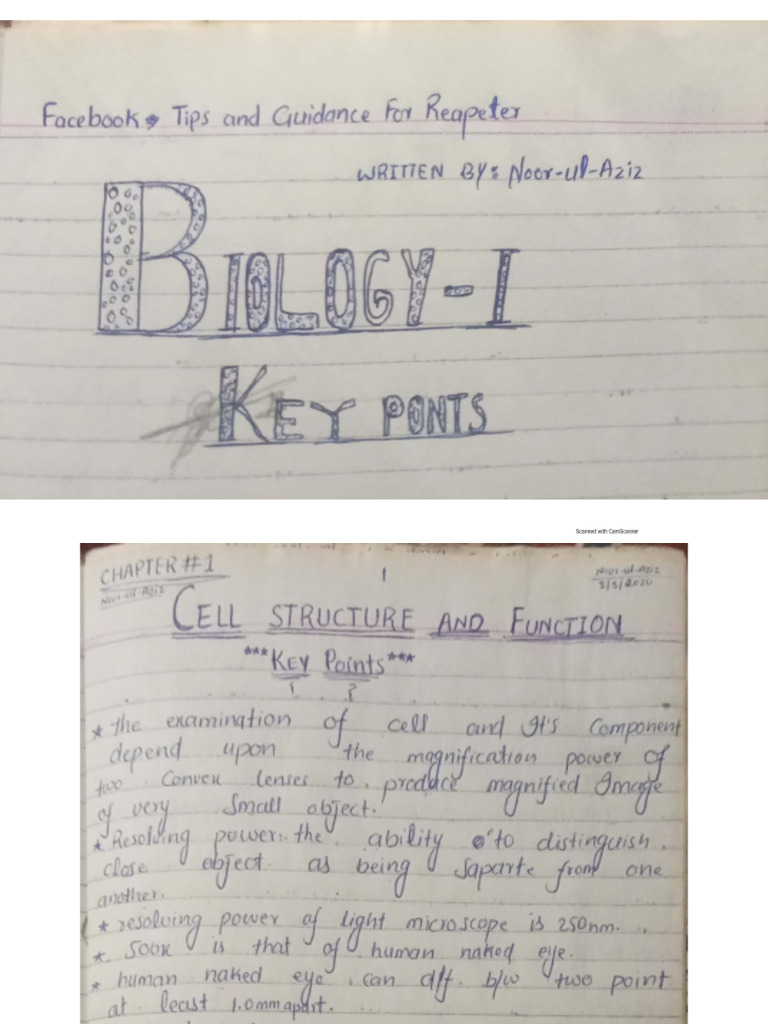 Facebook → Tips and Guidance For Reapeter
WRITTEN BY: Noor-ul-Aziz
BIOLOGY-I
KEY PONTS
Scanned with CamScanner
CHAPTER #1
1
Noor-ul-Aziz
Noor-ul-Aziz
5/5/2020
CELL STRUCTURE AND FUNCTION
***KEY Points***
* the examination of cell and It's Component
depend upon the magnification power of
two Convex lenses to produce magnified Image
of very Small object.
* Resolving power: the ability to distinguish
close object as being Saparte from one
another.
* resolving power of light microscope is 250nm.
* 500x is that of human naked eye.
* human naked eye can diff. b/w two point
at least 1.0mm apart.